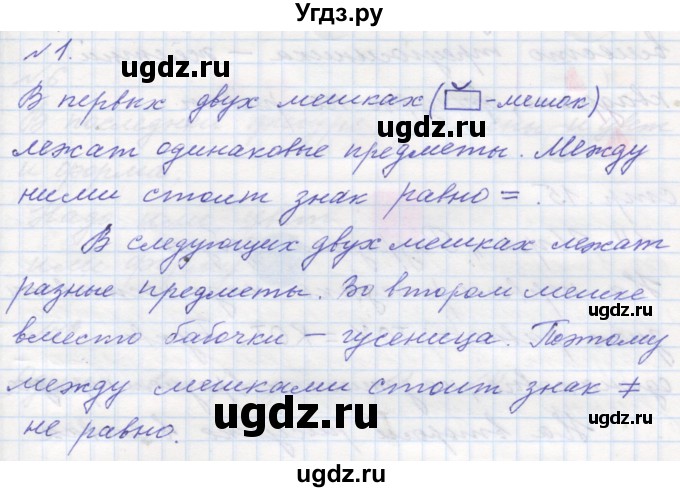 Угдз.ру
№1.
В первых двух мешках ( -мешок)
лежат одинаковые предметы. Между
ними стоит знак равно =.
В следующих двух мешках лежат
разные предметы. Во втором мешке
вместо бабочки – гусеница. Поэтому
между мешками стоит знак ≠
не равно.
ugdz.ru
ugdz.ru
ugdz.ru
ugdz.ru
ugdz.ru
ugdz.ru
ugdz.ru
ugdz.ru
ugdz.ru